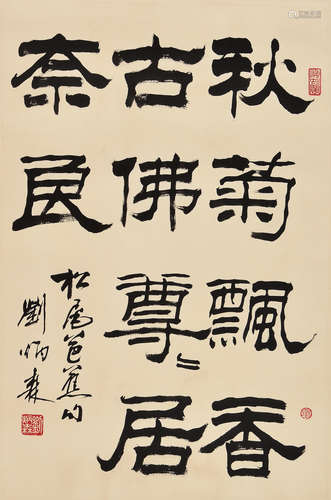 秋菊飄香
古佛尊々居
奈良
松尾芭蕉句
劉炳森